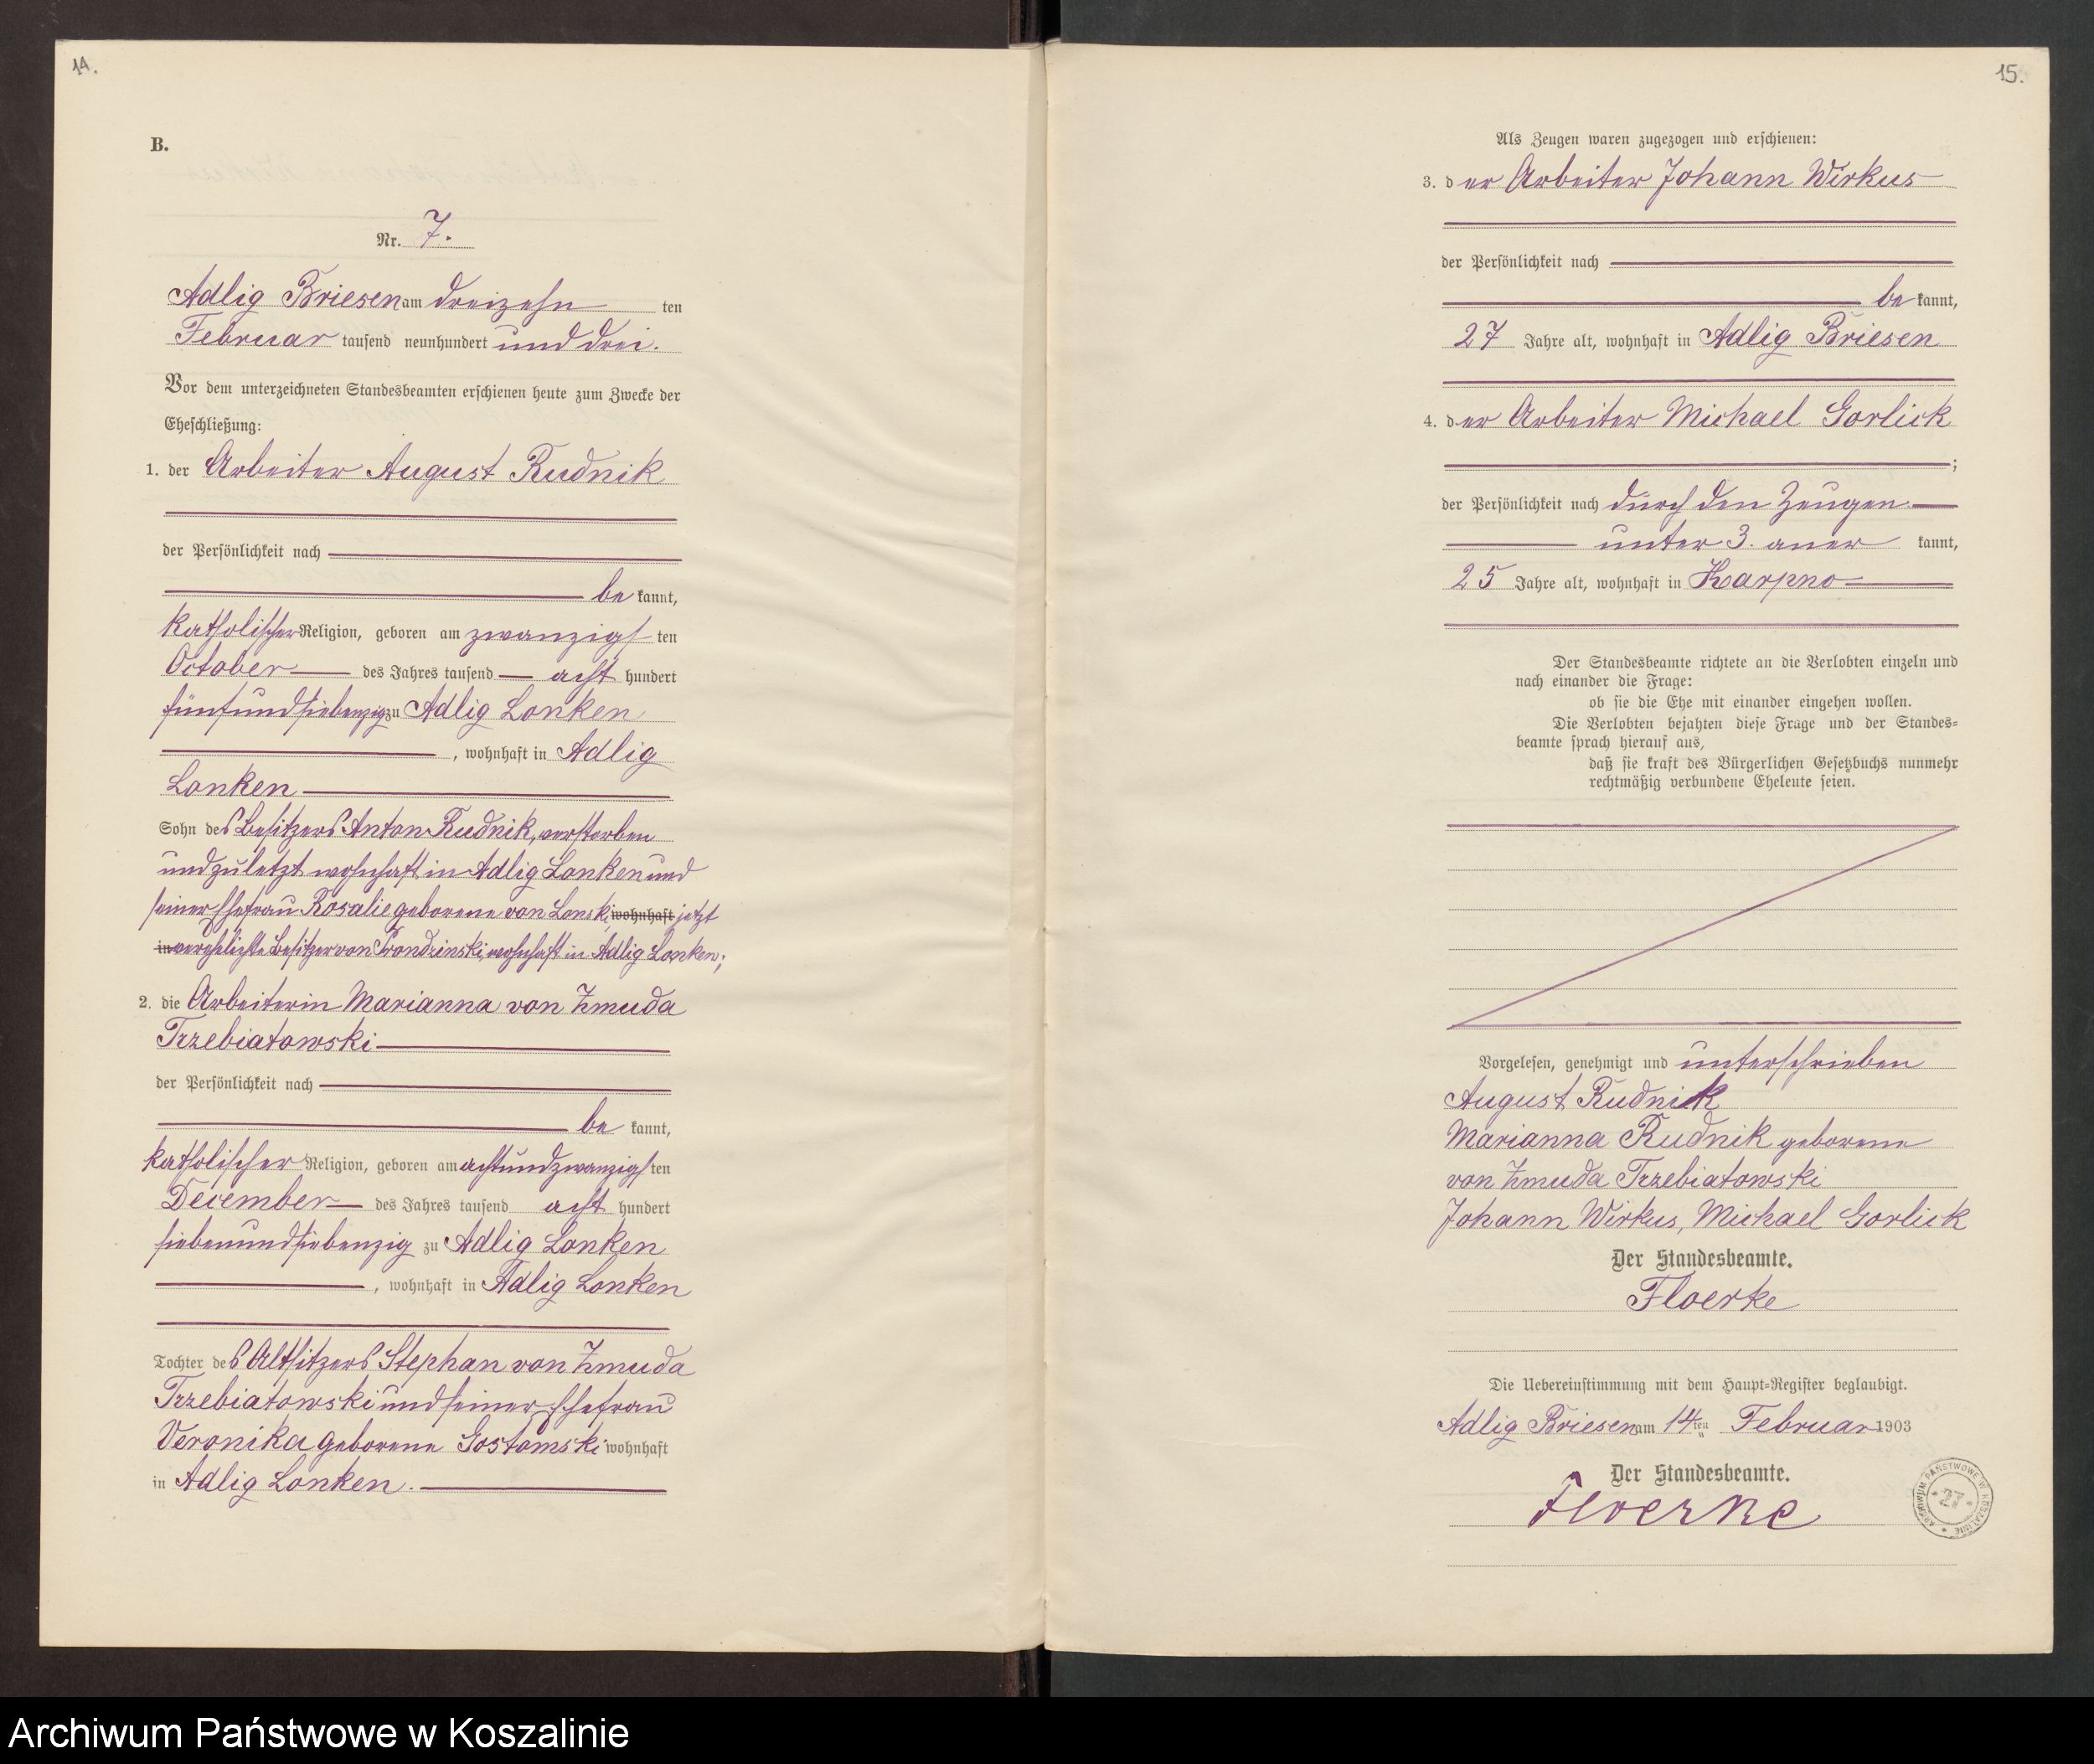 14.
B.
Nr. 7.
Adlig Briesen am dreizehn ten
Februar tausend neunhundert und drei.
Vor dem unterzeichneten Standesbeamten erschienen heute zum Zwecke der
Eheschließung:
1. der Arbeiter August Rudnik
der Persönlichkeit nach
be kannt,
katholischer Religion, geboren am zwanzigs ten
October des Jahres tausend acht hundert
fünfundsiebenzig zu Adlig Lonken
, wohnhaft in Adlig
Lonken
Sohn des Besitzers Anton Rudnik, verstorben
und zuletzt wohnhaft in Adlig Lonken und
seiner Ehefrau Rosalie geborene von Lonski, wohnhaft jetzt
in verehelichte Besitzer von Prondzinski, wohnhaft in Adlig Lonken;
2. die Arbeiterin Marianna von Zmuda
Trzebiatowski
der Persönlichkeit nach
be kannt,
katholischer Religion, geboren am achtundzwanzigs ten
December des Jahres tausend acht hundert
siebenundsiebenzig zu Adlig Lonken
, wohnhaft in Adlig Lonken
Tochter des Altsitzers Stephan von Zmuda
Trzebiatowski und seiner Ehefrau
Veronika geborene Gostomski wohnhaft
in Adlig Lonken.
15.
Als Zeugen waren zugezogen und erschienen:
3. der Arbeiter Johann Wirkus
der Persönlichkeit nach
be kannt,
27 Jahre alt, wohnhaft in Adlig Briesen
4. der Arbeiter Michael Gorlick
;
der Persönlichkeit nach durch den Zeugen
unter 3. aner kannt,
25 Jahre alt, wohnhaft in Karpno
Der Standesbeamte richtete an die Verlobten einzeln und
nach einander die Frage:
ob sie die Ehe mit einander eingehen wollen.
Die Verlobten bejahten diese Frage und der Standes-
beamte sprach hierauf aus,
daß sie kraft des Bürgerlichen Gesetzbuchs nunmehr
rechtmäßig verbundene Eheleute seien.
Vorgelesen, genehmigt und unterschrieben
August Rudnik
Marianna Rudnik geborene
von Zmuda Trzebiatowski
Johann Wirkus, Michael Gorlick
Der Standesbeamte.
Floerke
Die Uebereinstimmung mit dem Haupt-Register beglaubigt.
Adlig Briesen am 14ten Februar 1903
Der Standesbeamte.
Floerke
ARCHIWUM PAŃSTWOWE W KOSZALINIE
* 27 *
Archiwum Państwowe w Koszalinie